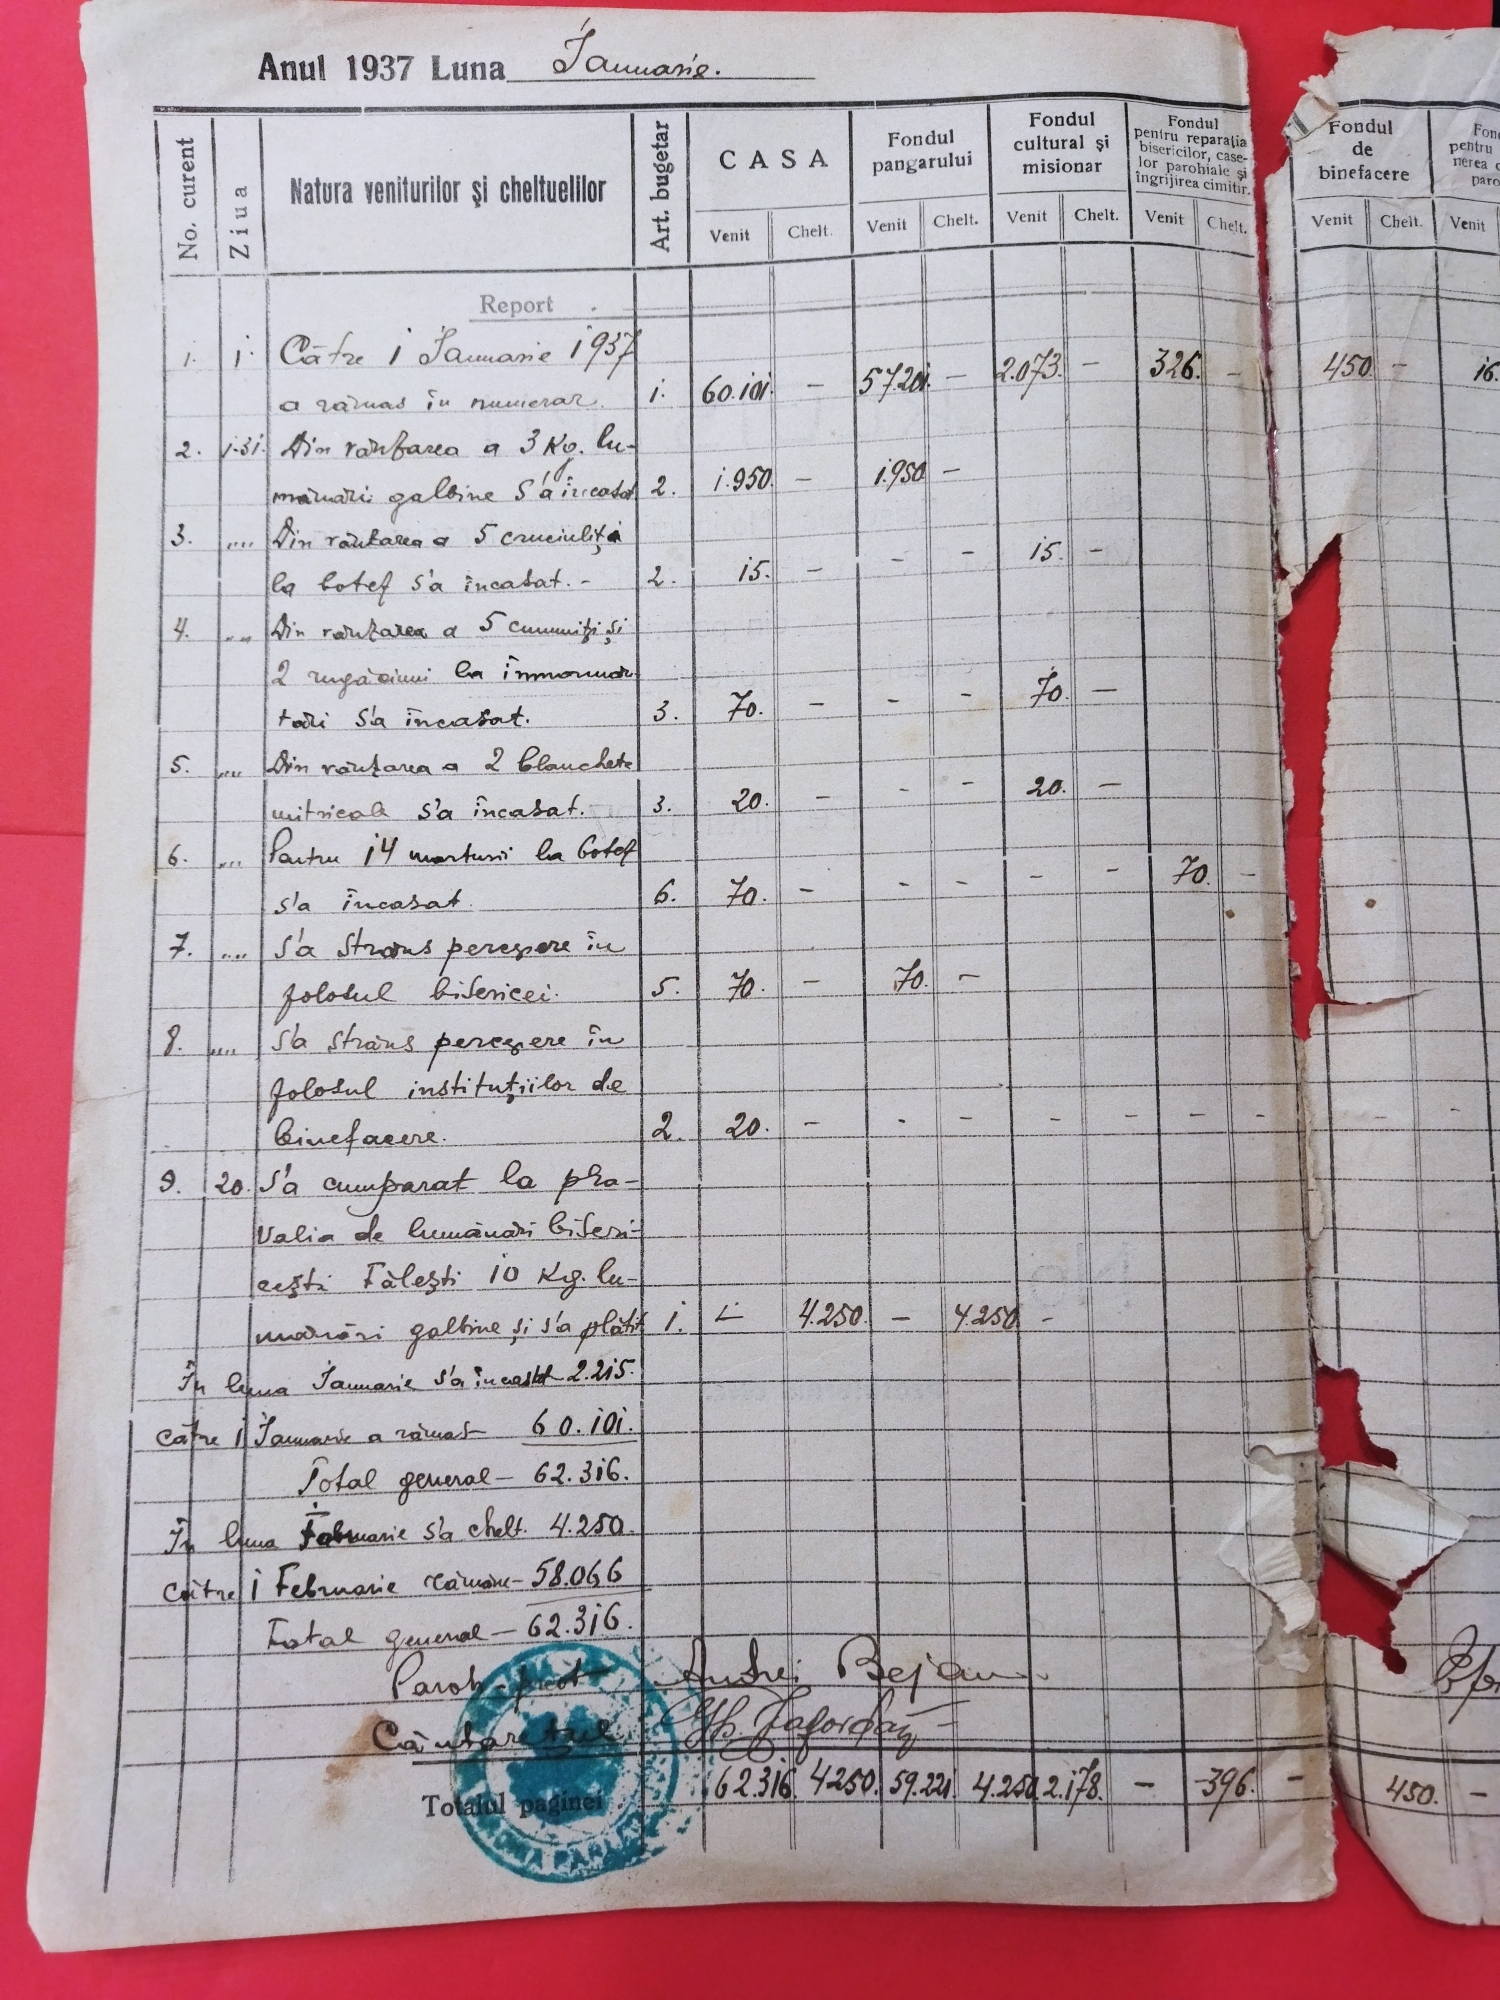 Anul 1937 Luna Ianuarie.
No. curent
Ziua
Natura veniturilor și cheltuelilor
Art. bugetar
CASA
Fondul pangarului
Fondul cultural și misionar
Fondul pentru reparația bisericilor, caselor parohiale și îngrijirea cimitir.
Fondul de binefacere
Venit Chelt. Venit Chelt. Venit Chelt. Venit Chelt. Venit Chelt. Venit
Report
1. 1. Către 1 Ianuarie 1937
a rămas în numerar. 1. 60.101. – 57.201. – 2.073. – 326. – 450. – 16.
2. 1-31. Din vânzarea a 3 Kg. lu-
mânări galbine s'a încasat 2. 1.950. – 1.950. –
3. „„ Din vânzarea a 5 cruciulița
la botez s'a încasat. - 2. 15. – – – 15. –
4. „„ Din vânzarea a 5 cununiți și
2 rugăciuni la înmormân
tări s'a încasat. 3. 70. – – – 70. –
5. „„ Din vânzarea a 2 blanchete
mitricale s'a încasat. 3. 20. – – – 20. –
6. „„ Pentru 14 marturii la botez
s'a încasat. 6. 70. – – – – – 70. –
7. „„ S'a strâns perceere în
folosul bisericei. 5. 70. – 70. –
8. „„ S'a strâns perceere în
folosul instituțiilor de
binefacere. 2. 20. – – – – – – – – –
9. 20. S'a cumparat la pra-
valia de lumânări biseri-
cești Fălești 10 Kg. lu-
mânări galbine și s'a plătit 1. – 4.250. – 4.250. –
În luna Ianuarie s'a încasat 2.215.
Către 1 Ianuarie a rămas – 60.101.
Total general – 62.316.
În luna Februarie s'a chelt. 4.250.
Către 1 Februarie rămâne – 58.066
Total general – 62.316.
Paroh-preot Andrei Bejan
Cântarețul Gh.
Totalul paginei 62.316. 4250. 59.221. 4.250. 2.178. – 396. – 450. –